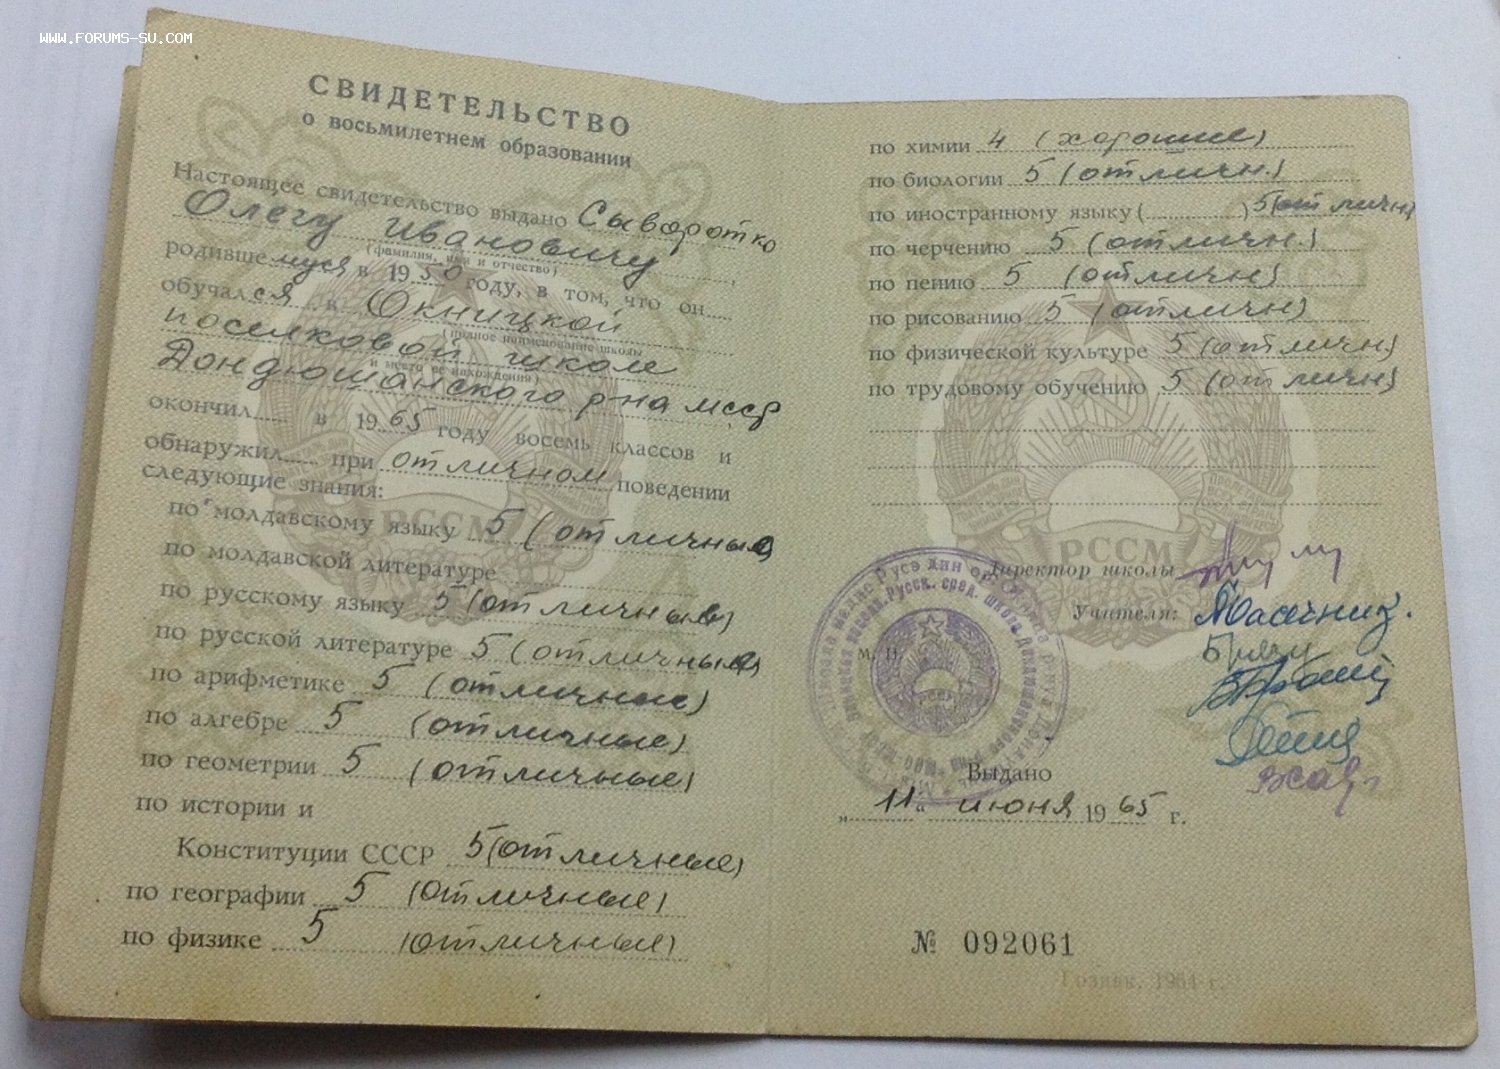 WWW.FORUMS-SU.COM
СВИДЕТЕЛЬСТВО
о восьмилетнем образовании
Настоящее свидетельство выдано Сыворотко
Олегу Ивановичу
(фамилия, имя и отчество)
родившемуся в 1950 году, в том, что он
обучался в Окницкой
(полное наименование школы
поселковой школе
и место ее нахождения)
Дондюшанского р-на МССР
окончил в 1965 году восемь классов и
обнаружил при отличном поведении
следующие знания:
по молдавскому языку 5 (отличные)
по молдавской литературе
по русскому языку 5 (отличные)
по русской литературе 5 (отличные)
по арифметике 5 (отличные)
по алгебре 5 (отличные)
по геометрии 5 (отличные)
по истории и
Конституции СССР 5 (отличные)
по географии 5 (отличные)
по физике 5 (отличные)
РССМ
по химии 4 (хорошие)
по биологии 5 (отличн.)
по иностранному языку ( ) 5 (отличн)
по черчению 5 (отличн.)
по пению 5 (отличн)
по рисованию 5 (отличн)
по физической культуре 5 (отличн)
по трудовому обучению 5 (отличн)
РССМ
Директор школы
Учителя:
М. П.
Выдано
„11“ июня 1965 г.
№ 092061
Гознак. 1964 г.